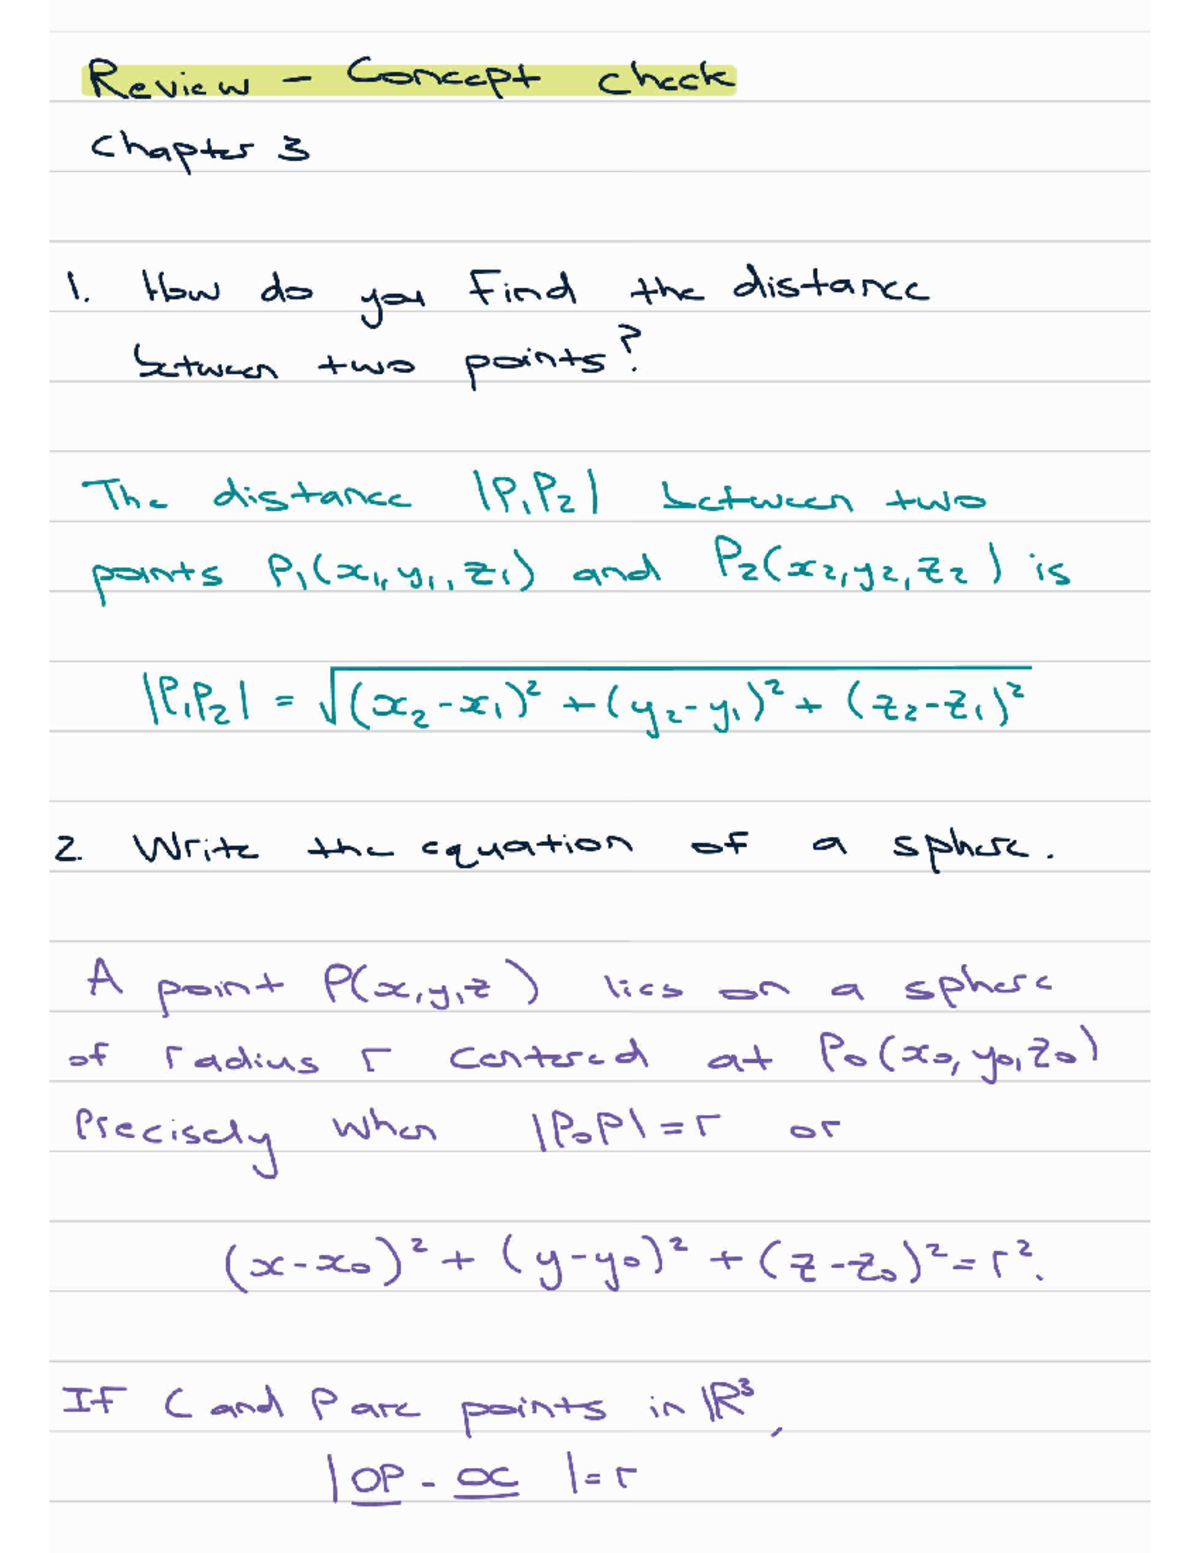 Review - Concept check
Chapter 3
1. How do you find the distance
between two points?
The distance |P₁P₂| between two
points P₁(x₁, y₁, z₁) and P₂(x₂, y₂, z₂) is
|P₁P₂| = √(x₂-x₁)² + (y₂-y₁)² + (z₂-z₁)²
2. Write the equation of a sphere.
A point P(x,y,z) lies on a sphere
of radius r centered at P₀(x₀, y₀, z₀)
Precisely when |P₀P| = r or
(x-x₀)² + (y-y₀)² + (z-z₀)² = r².
If C and P are points in ℝ³,
|OP - OC| = r